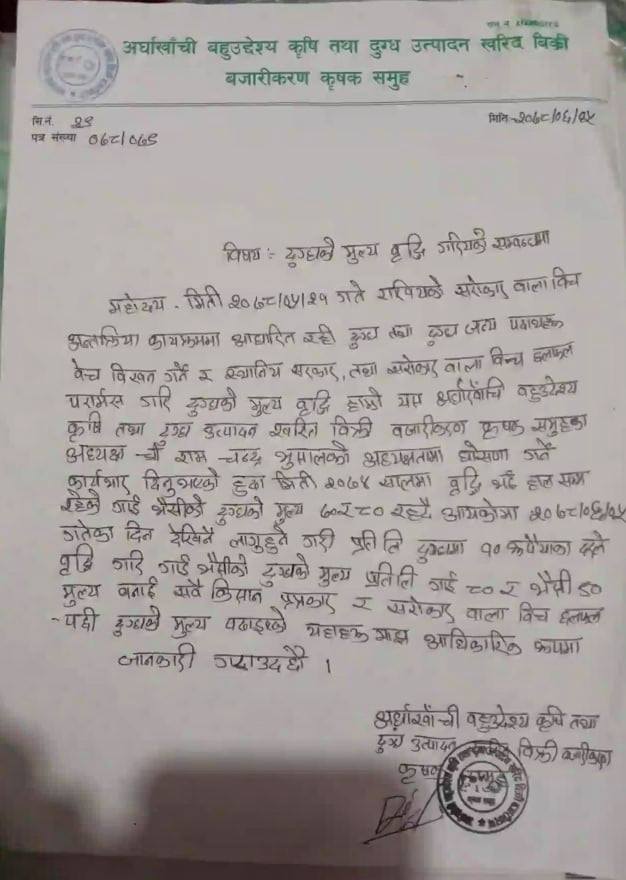 अर्घाखाँची बहुउद्देश्य कृषि तथा दुग्ध उत्पादन खरिद बिक्री
बजारीकरण कृषक समुह
मि.नं. २९
मिति-२०७८/०६/१५
पत्र संख्या ०७८/०७९
विषय :- दुग्धको मुल्य वृद्धि गरिएको सम्बन्धमा
महोदय . मिती २०७८/०५/२१ गते सरोकार वाला विच
अन्तक्रिया कार्यक्रममा आधारित रही दुग्ध तथा दुग्ध जन्य
वेच विखन गर्ने र स्थानिय सरकार, तथा सरोकार वाला विच छलफल
परार्मस गरि दुग्धको मुल्य वृद्धि हाम्रो यस अर्घाखाँची बहुउदेश्य
कृषि तथा दुग्ध उत्पादन खरित विक्री बजारीकरण कृषक समुहका
अध्यक्ष श्री राम चन्द्र भुसालको अध्यक्षतामा घोसणा गर्ने
कार्यभार दिनुभएको हुदा मिती २०७४ सालमा वृद्धि भई हाल सम्म
रहेको गाई भैसीको दुग्धको मुल्य ७० र ८० रहदै आएकोमा २०७८/०६/१५
गतेका दिन देखिनै लागुहुने गरी प्रति लि दुग्धमा १० रूपैयाका दरले
वृद्धि गरि गाई भैसीको दुग्धको मुल्य प्रतिलि गाई ८० र भैसी ९०
मुल्य बनाई सवै किसान पत्रकार र सरोकार वाला विच छलफल
पछी दुग्धको मुल्य बढाइएको यहाहरू माझ आधिकारिक रूपमा
जानकारी गराउदछौ ।
अर्घाखाँची बहुउदेश्य कृषि तथा
दुग्ध उत्पादन विक्री बजारीकरण
कृषक